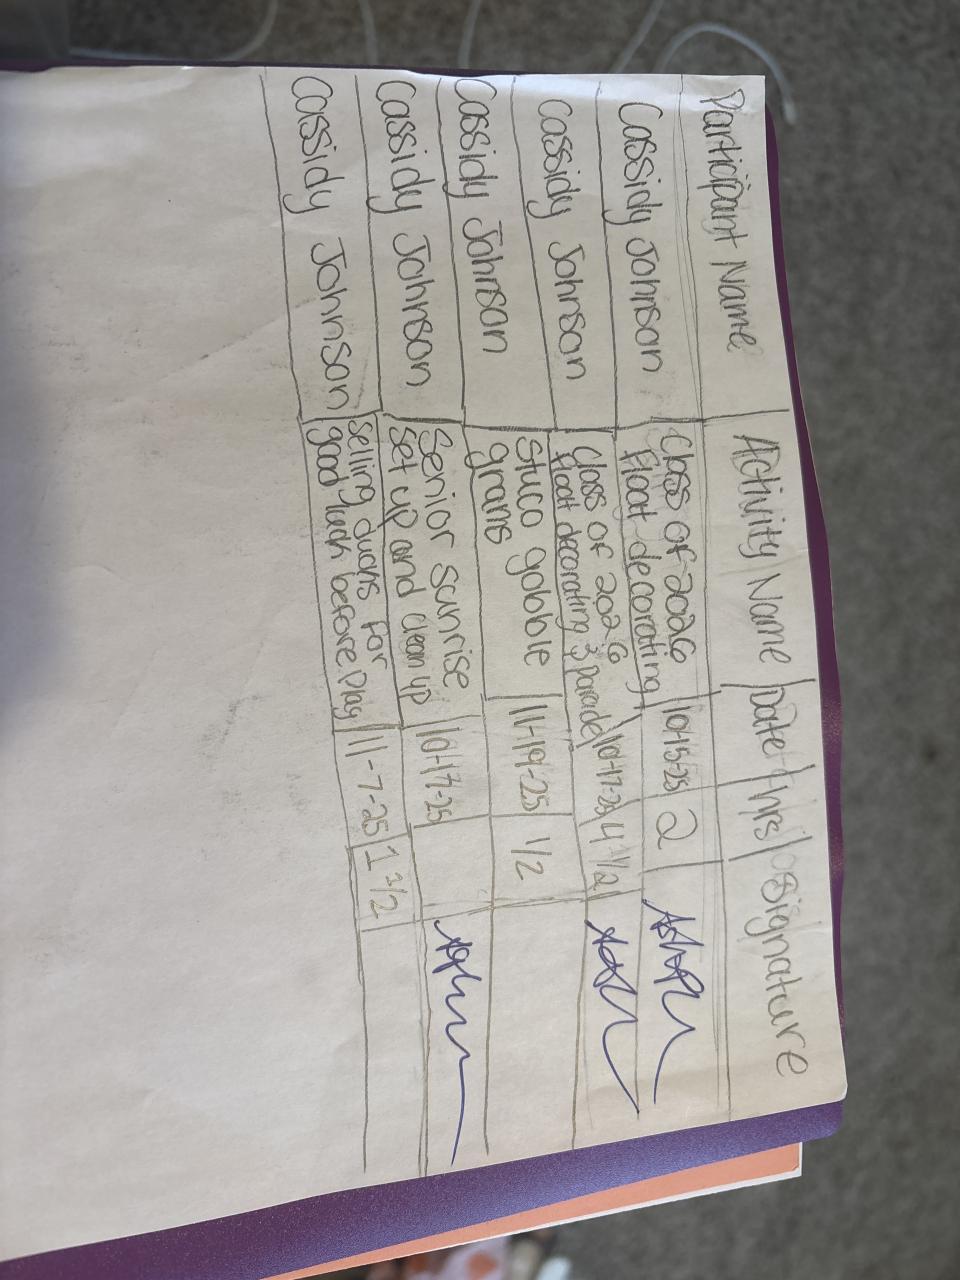 Participant Name Activity Name Date hrs signature
Cassidy Johnson Class of 2026 10-15-25 2
Float decorating
Cassidy Johnson Class of 2026 10-17-25 4 1/2
float decorating & parade
Cassidy Johnson Stuco gobble 11-19-25 1/2
grams
Cassidy Johnson Senior sunrise 10-17-25
set up and clean up
Cassidy Johnson Selling ducks for 11-7-25 1 3/2
good luck before play